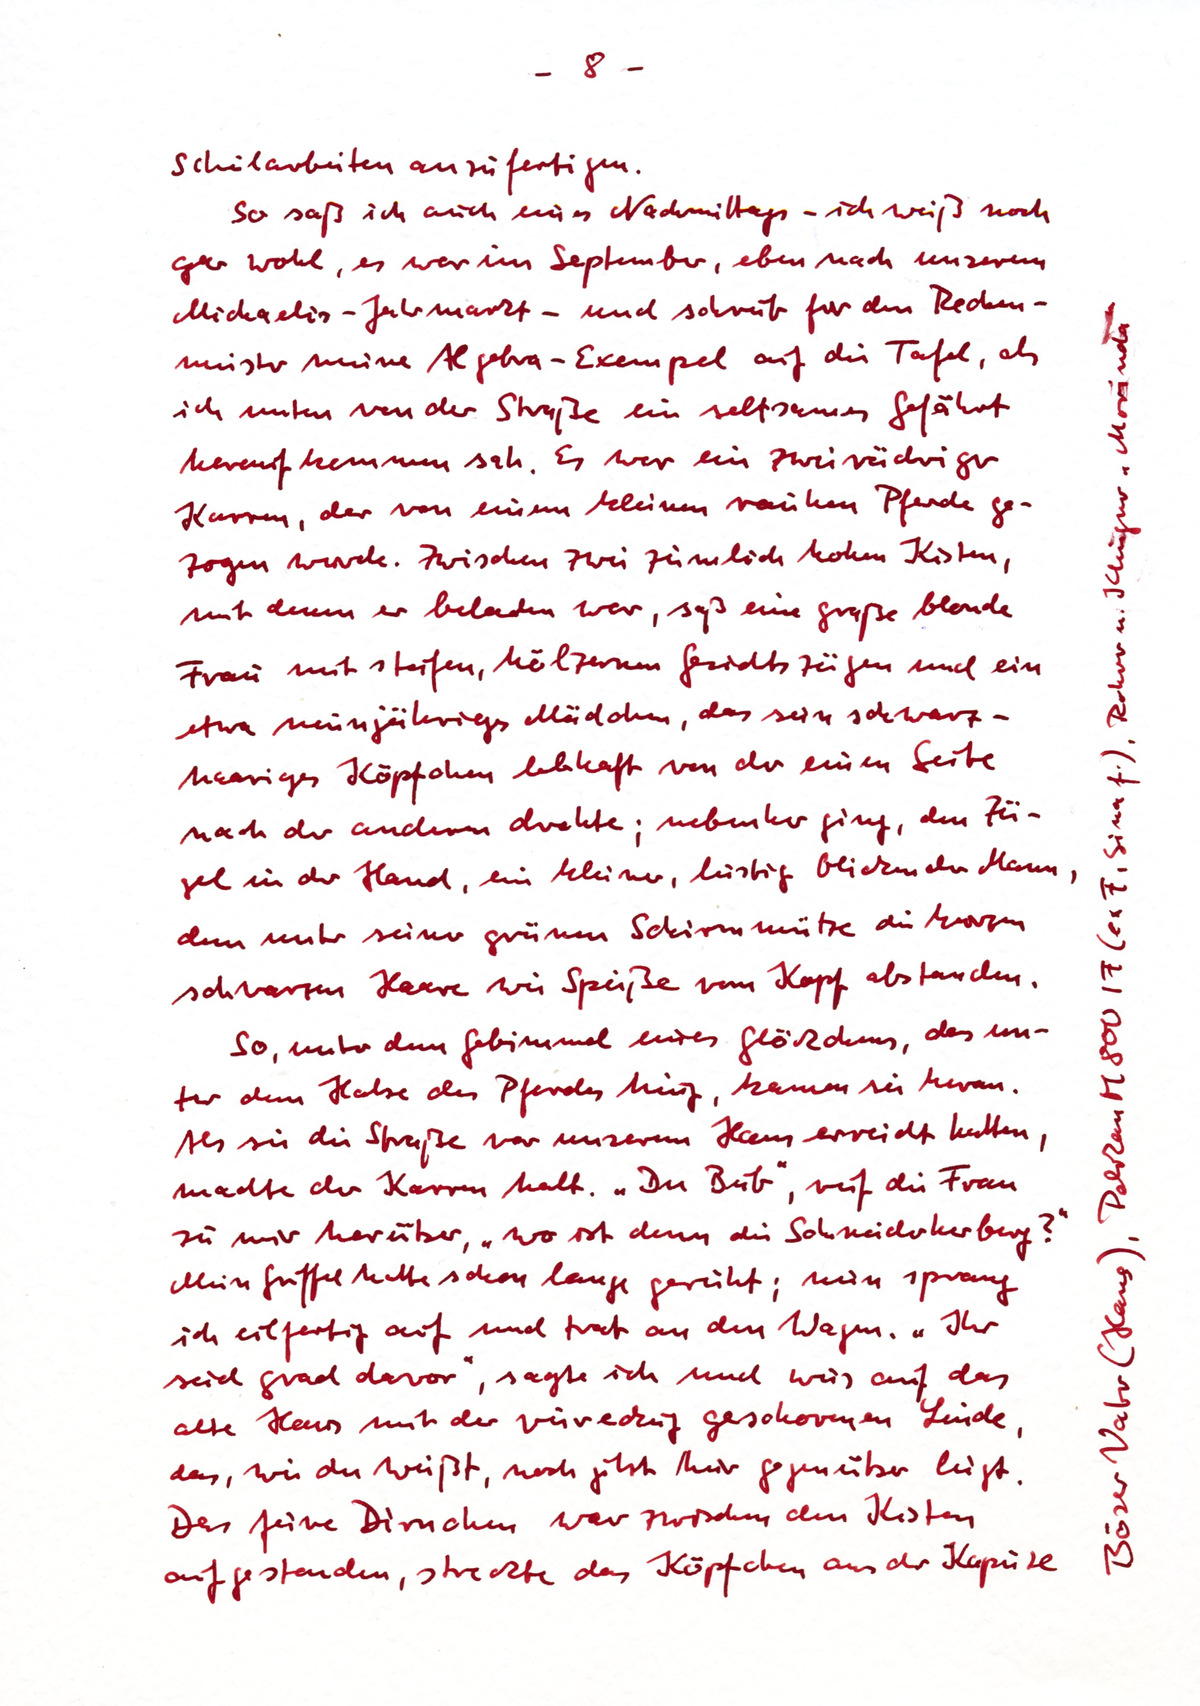 - 8 -
Schularbeiten anzufertigen.
So saß ich auch eines Nachmittags – ich weiß noch
gar wohl, es war im September, eben nach unserem
Michaelis-Jahrmarkt – und schrieb für den Rechen-
meister meine Algebra-Exempel auf die Tafel, als
ich unten von der Straße ein seltsames Gefährt
heraufkommen sah. Es war ein zweirädriger
Karren, der von einem kleinen rauhen Pferde ge-
zogen wurde. Zwischen zwei ziemlich hohen Kisten,
mit denen er beladen war, saß eine große blonde
Frau mit steifen, hölzernen Gesichtszügen und ein
etwa neunjähriges Mädchen, das sein schwarz-
haariges Köpfchen lebhaft von der einen Seite
nach der anderen drehte; nebenher ging, den Zü-
gel in der Hand, ein kleiner, lustig blickender Mann,
dem unter seiner grünen Schirmmütze die kurzen
schwarzen Haare wie Spieße vom Kopf abstanden.
So, unter dem Gebimmel eines Glöckchens, das un-
ter dem Halse des Pferdes hing, kamen sie heran.
Als sie die Straße vor unserem Haus erreicht hatten,
machte der Karren halt. „Du Bub“, rief die Frau
zu mir herüber, „wo ist denn die Schneiderherberg?“
Mein Griffel hatte schon lange geruht; nun sprang
ich eilfertig auf und trat an den Wagen. „Ihr
seid grad davor“, sagte ich und wies auf das
alte Haus mit der viereckig geschorenen Linde,
das, wie du weißt, noch jetzt hier gegenüber liegt.
Das feine Dirnchen war zwischen den Kisten
aufgestanden, streckte das Köpfchen aus der Kapuze
Böser Vater (Hans), Pelikan M 800 IF (ex F, Sina f.), Rohrer u. Klingner „Morinda“